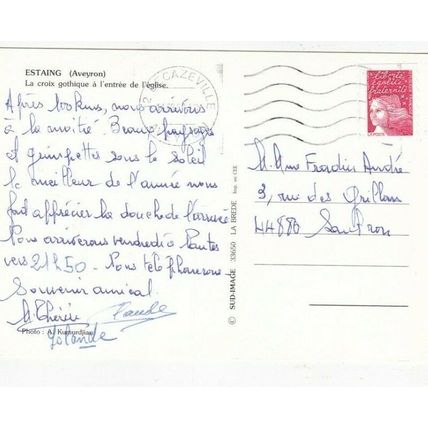 ESTAING (Aveyron)
La croix gothique à l'entrée de l'église.
Après 100 kms, nous arrivons
à la moitié. Beaux paysages
et grimpettes sous le soleil
le meilleur de l'année nous
fait apprécier la douche de l'arrivée
Nous arriverons vendredi à Nantes
vers 21h50. Nous téléphonerons.
Souvenir amical.
M. Thérèse Claude
Yolande
Photo : A. Kumurdjian
© SUD-IMAGE 33650 LA BREDE Imp. en CEE
CAZEVILLE
liberté
égalité
fraternité
LA POSTE
M. Mme Fradin André
3, rue des Grillons
44880 Sautron